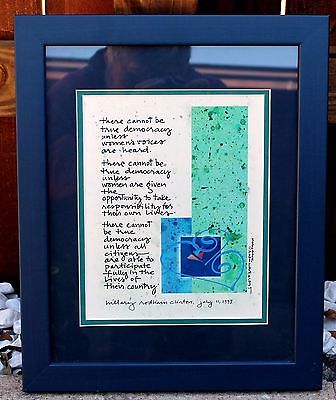 there cannot be
true democracy
unless
women's voices
are heard.
there cannot be
true democracy
unless
women are given
the
opportunity to take
responsibility for
their own lives.
there cannot
be true
democracy
unless all
citizens
are able to
participate
fully in the
lives of
their country
hillary rodham clinton, july 11, 1997